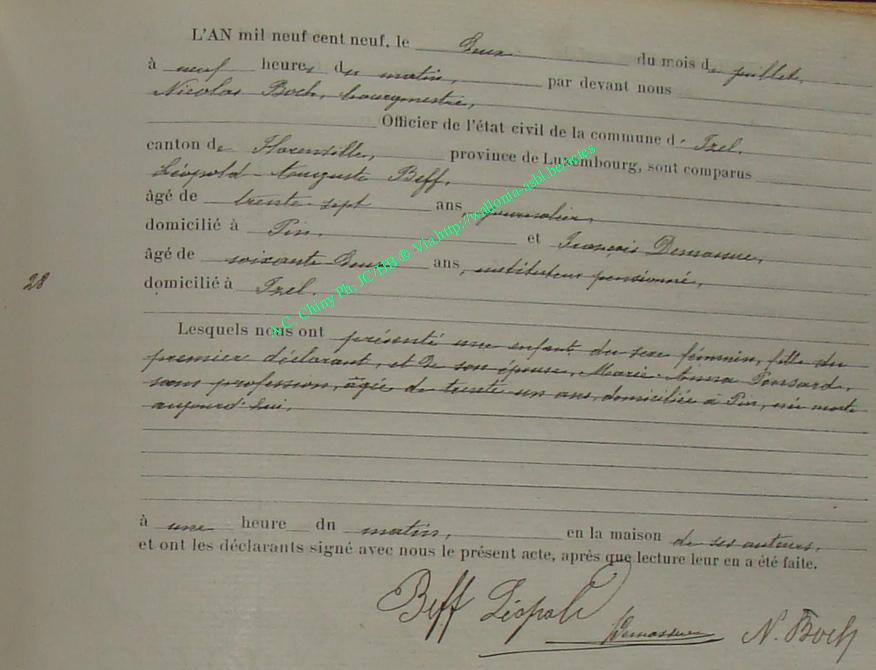 L'AN mil neuf cent neuf, le deux du mois de juillet,
à neuf heures du matin, par devant nous
Nicolas Boch, bourgmestre,
Officier de l'état civil de la commune d'Izel,
canton de Florenville, province de Luxembourg, sont comparus
Léopold Auguste Beff,
âgé de trente sept ans, journalier,
domicilié à Pin, et François Demassue,
âgé de soixante deux ans, instituteur pensionné,
28
domicilié à Izel.
Lesquels nous ont présenté une enfant du sexe féminin, fille du
premier déclarant, et de son épouse, Marie Anna Ponsard,
sans profession, âgée de trente un ans, domiciliée à Pin, née morte
aujourd'hui,
à une heure du matin, en la maison de ses auteurs,
et ont les déclarants signé avec nous le présent acte, après que lecture leur en a été faite.
Beff Léopold Demassue N. Boch
A.C. Chiny Ph. JC HB ® Via http://wallonia-asbl.be/actes